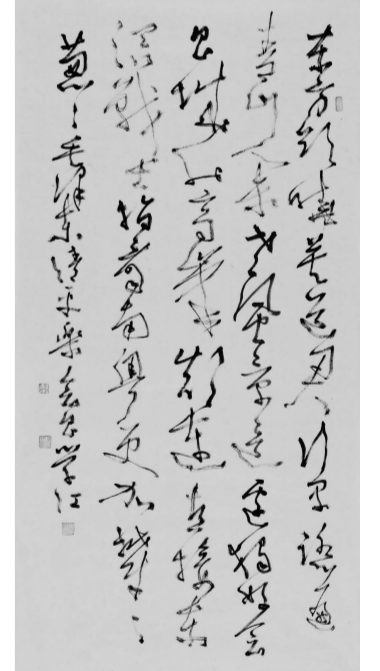 東方欲曉莫道君行早踏遍
青山人未老風景這邊獨好會
昌城外高峰顛連直接東
溟戰士指看南粤更加鬱々
蔥々毛澤東清平樂會昌学江